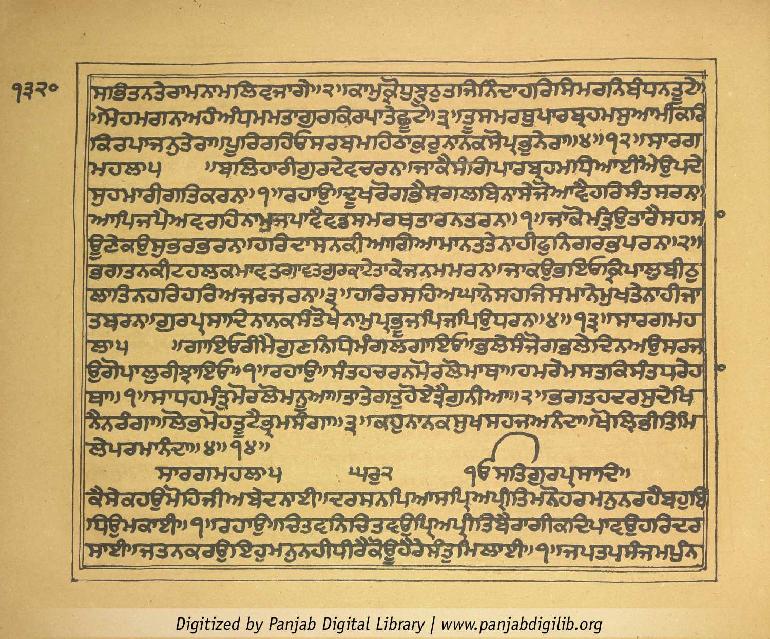 ੧੩੨੦
ਸਾਭਿਤਨਤੇਰਾਮਨਾਮਲਿਵਜਾਗੇ॥੨॥ਕਾਮਕ੍ਰੋਧੁਝੂਨੁਤਾਜਿਨਿੰਦਾਹਰਿਸਿਮਰਨਿਬੰਧਨਤੂਟੇ॥
ਮੋਹਮਗਨਅਹੰਅੰਧਮਮਤਾਗੁਰਕਿਰਪਾਤੇਛੂਟੇ॥੩॥ਤੂਸਮਰਥੁਪਾਰਬ੍ਰਹਮਸੁਆਮੀਕਰਿ
ਕਿਰਪਾਜਨੁਤੇਰਾ॥ਪੂਰਿਰਹਿਓਸਰਬਮਹਿਠਾਕੁਰੁਨਾਨਕਸੋਪ੍ਰਭੁਨੇਰਾ॥੪॥੧੨॥ਸਾਰਗ
ਮਹਲਾ੫ ॥ਬਲਿਹਾਰੀਗੁਰਦੇਵਚਰਨ॥ਜਾਕੈਸੰਗਿਪਾਰਬ੍ਰਹਮਧਿਆਈਐਉਪਦੇ
ਸੁਹਮਾਰੀਗਤਿਕਰਨ॥੧॥ਰਹਾਉ॥ਦੂਖਰੋਗਭੈਸਗਲਬਿਨਾਸੇਜੋਆਵੈਹਰਿਸੰਤਸਰਨ॥
ਆਪਿਜਪੈਅਵਰਹਿਨਾਮੁਜਪਾਵੈਵਡਸਮਰਥਤਾਰਨਤਰਨ॥੧॥ਜਾਕੋਮੰਤ੍ਰੁਉਤਾਰੈਸਹਸਾ
ਊਣੇਕਉਸੁਭਰਭਰਨ॥ਹਰਿਦਾਸਨਕੀਆਗਿਆਮਾਨਤਤੇਨਾਹੀਫੁਨਿਗਰਭਪਰਨ॥੨॥
ਭਗਤਨਕੀਟਹਲਕਮਾਵਤਗਾਵਤਗੁਰਕਾਟੇਤਾਕੇਜਨਮਮਰਨ॥ਜਾਕਉਭਇਓਕ੍ਰਿਪਾਲੁਬੀਠੁ
ਲਾਤਿਨਹਰਿਹਰਿਅਜਰਜਰਨ॥੩॥ਹਰਿਰਸਹਿਅਘਾਨੇਸਹਜਿਸਮਾਨੇਮੁਖਤੇਨਾਹੀਜਾ
ਤਬਰਨ॥ਗੁਰਪ੍ਰਸਾਦਿਨਾਨਕਸੰਤੋਖੇਨਾਮੁਪ੍ਰਭੂਜਪਿਜਪਿਉਧਰਨ॥੪॥੧੩॥ਸਾਰਗਮਹ
ਲਾ੫ ॥ਗਾਇਓਰੀਮੈਗੁਣਨਿਧਿਮੰਗਲਗਾਇਓ॥ਭਲੇਸੰਜੋਗਭਲੇਦਿਨਅਉਸਰਜ
ਉਗੋਪਾਲੁਰੀਝਾਇਓ॥੧॥ਰਹਾਉ॥ਸੰਤਹਚਰਨਮੋਰਲੋਮਾਥਾ॥ਹਮਰੇਮਸਤਕਿਸੰਤਧਰੇਹ
ਥਾ॥੧॥ਸਾਧਹਮੰਤ੍ਰੁਮੋਰਲੋਮਨੂਆ॥ਤਾਤੇਗਤੁਹੋਏਤ੍ਰੈਗੁਨੀਆ॥੨॥ਭਗਤਹਦਰਸੁਦੇਖਿ
ਨੈਨਰੰਗਾ॥ਲੋਭਮੋਹਤੂਟੇਭ੍ਰਮਸੰਗਾ॥੩॥ਕਹੁਨਾਨਕਸੁਖਸਹਜਅਨੰਦਾ॥ਖੋਲ੍ਹਿਭੀਤਿਮਿ
ਲੇਪਰਮਾਨੰਦਾ॥੪॥੧੪॥
ਸਾਰਗਮਹਲਾ੫ ਘਰੁ੨ ੧ਓਸਤਿਗੁਰਪ੍ਰਸਾਦਿ॥
ਕੈਸੇਕਹਉਮੋਹਿਜੀਅਬੇਦਨਾਈ॥ਦਰਸਨਪਿਆਸਪ੍ਰਿਅਪ੍ਰੀਤਿਮਨੋਹਰਮਨੁਨਰਹੈਬਹੁਬਿ
ਧਿਉਮਕਾਈ॥੧॥ਰਹਾਉ॥ਚਿਤਵਨਿਚਿਤਵਉਪ੍ਰਿਅਪ੍ਰੀਤਿਬੈਰਾਗੀਕਦਿਪਾਵਉਹਰਿਦਰ
ਸਾਈ॥ਜਤਨਕਰਉਇਹੁਮਨੁਨਹੀਧੀਰੈਕੋਊਹੈਰੇਸੰਤੁਮਿਲਾਈ॥੧॥ਜਪਤਪਸੰਜਮਪੁੰਨ
Digitized by Panjab Digital Library | www.panjabdigilib.org